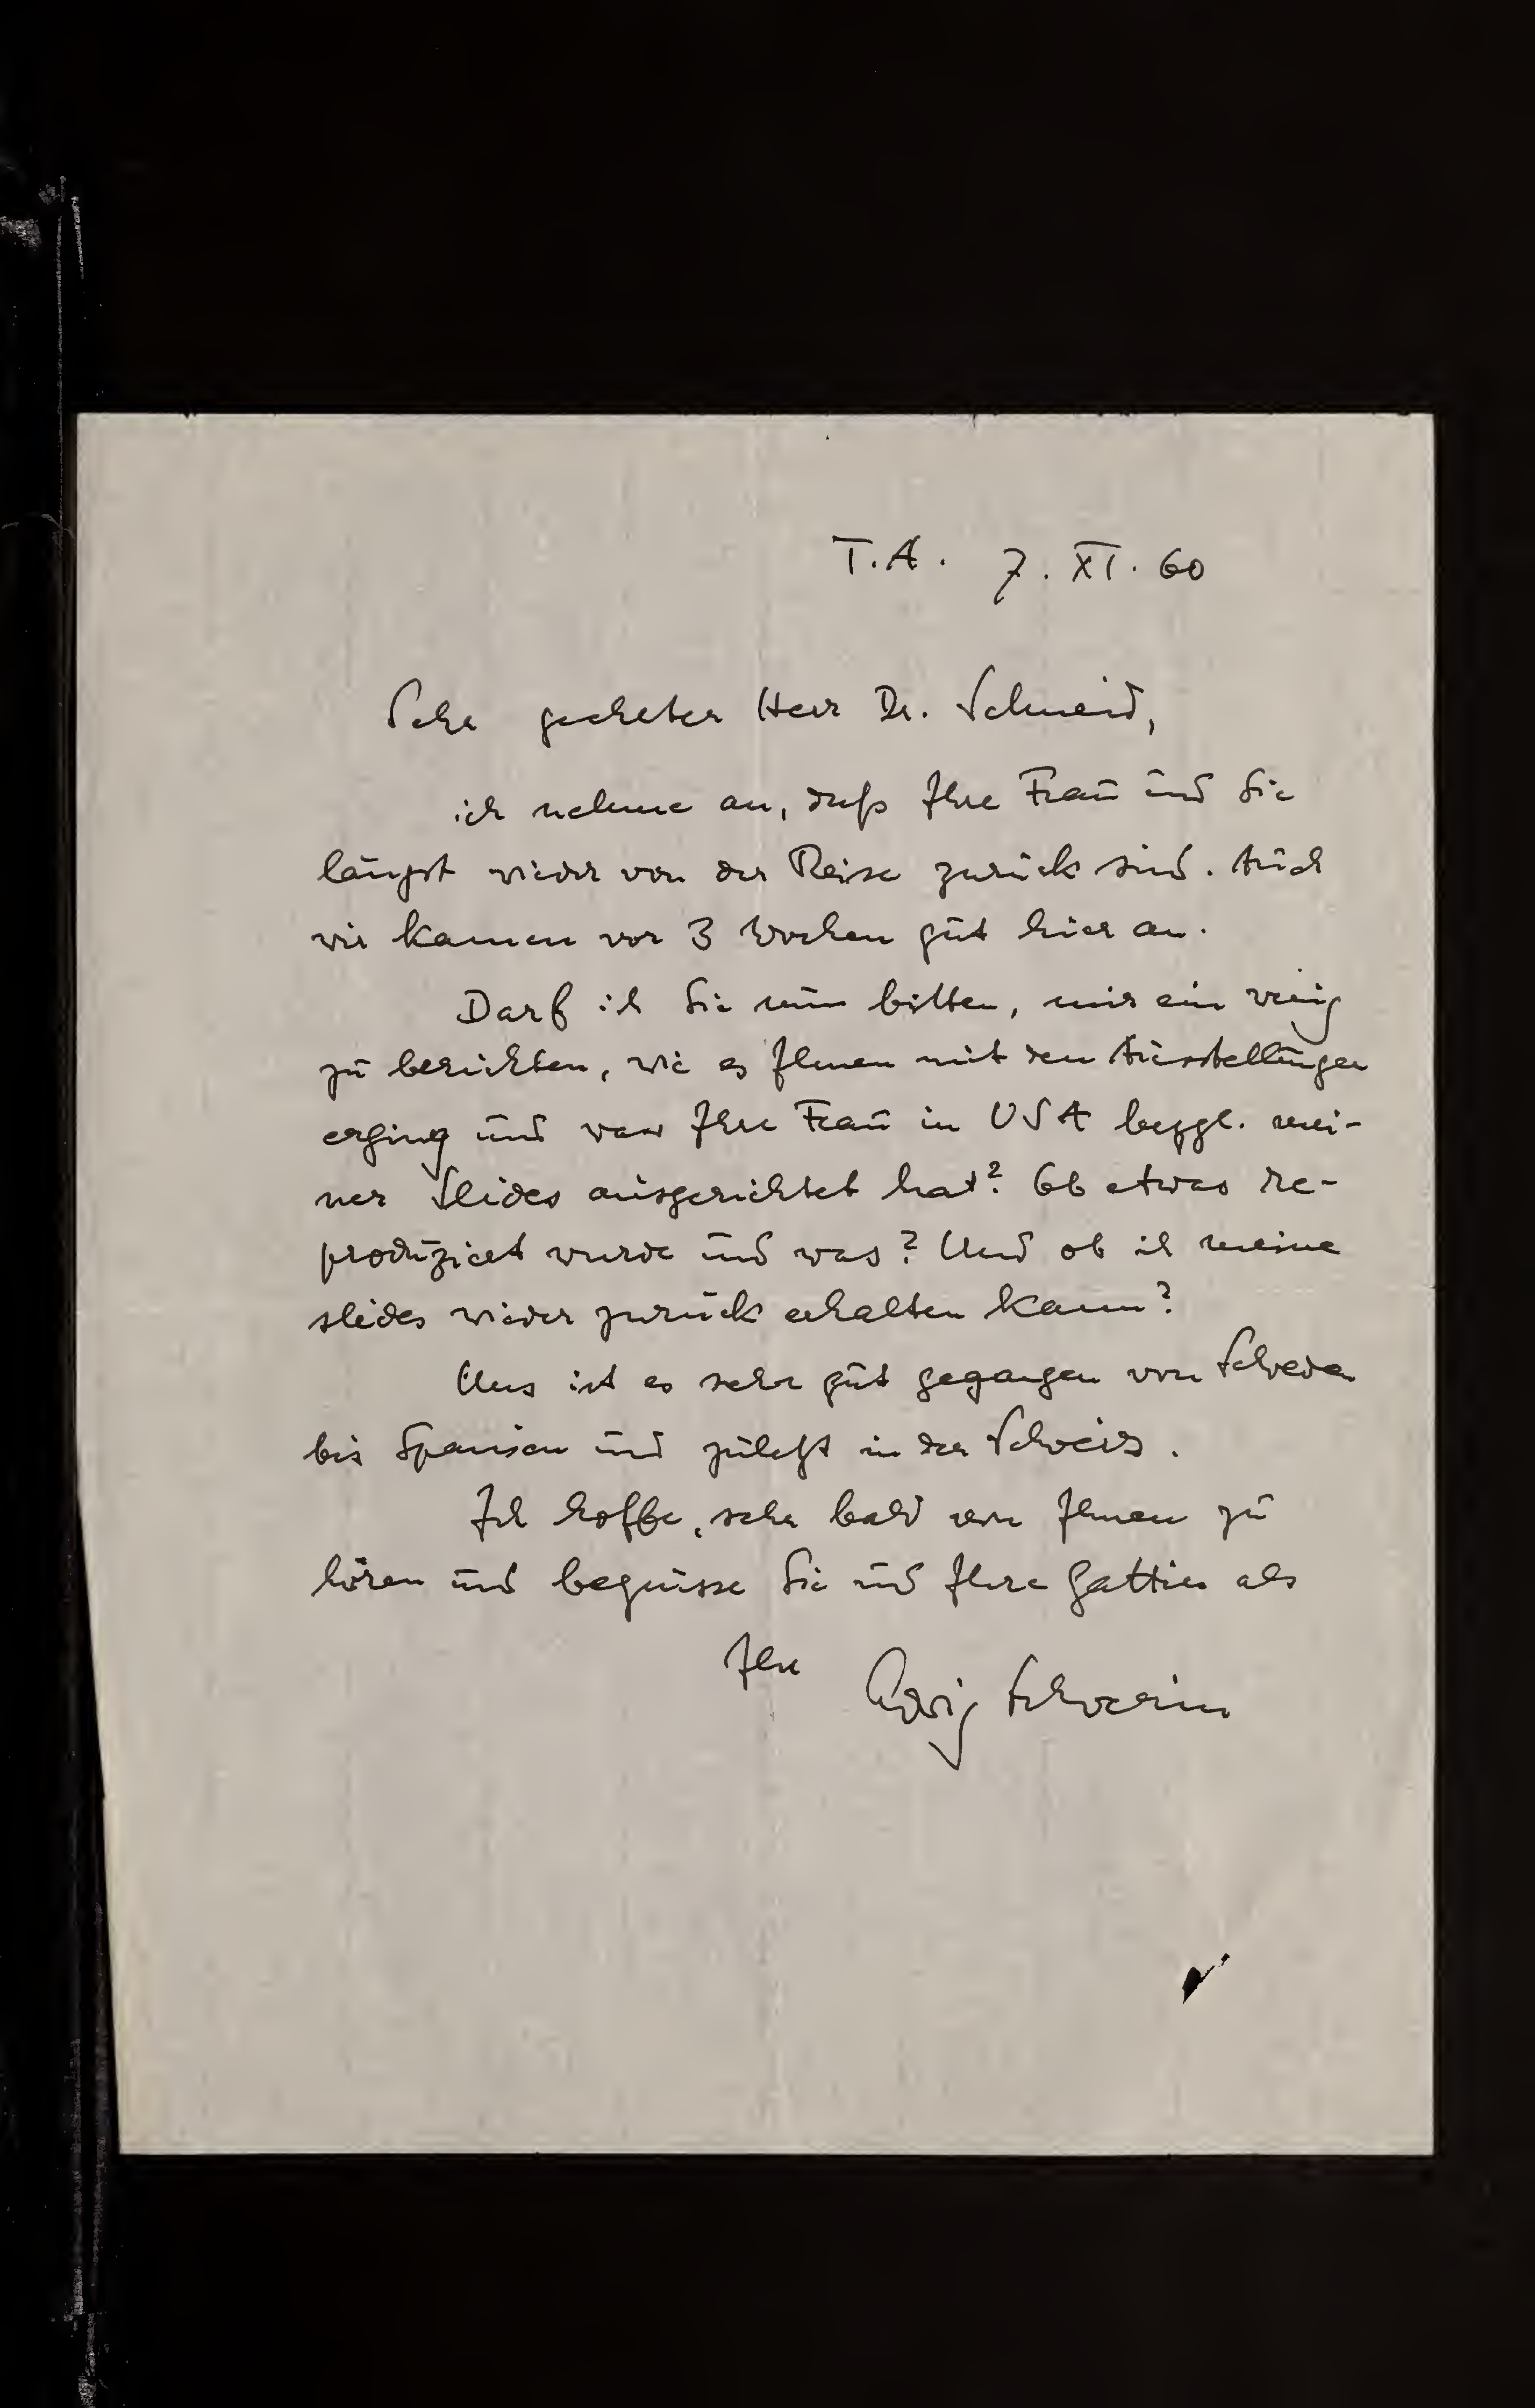 T.A. 7. XI. 60
Sehr geehrter Herr Dr. Schmeid,
ich nehme an, daß Ihre Frau und Sie
längst wieder von der Reise zurück sind. Auch
wir kamen vor 3 Wochen gut hier an.
Darf ich Sie nun bitten, mir ein wenig
zu berichten, wie es Ihnen mit den Ausstellungen
erging und was Ihre Frau in USA bezgl. mei-
ner Slides ausgerichtet hat? Ob etwas re-
produziert wurde und was? Und ob ich meine
slides wieder zurück erhalten kann?
Uns ist es sehr gut gegangen von Schweden
bis Spanien und zuletzt in der Schweiz.
Ich hoffe, sehr bald von Ihnen zu
hören und begrüsse Sie und Ihre Gattin als
Ihr Schwerin